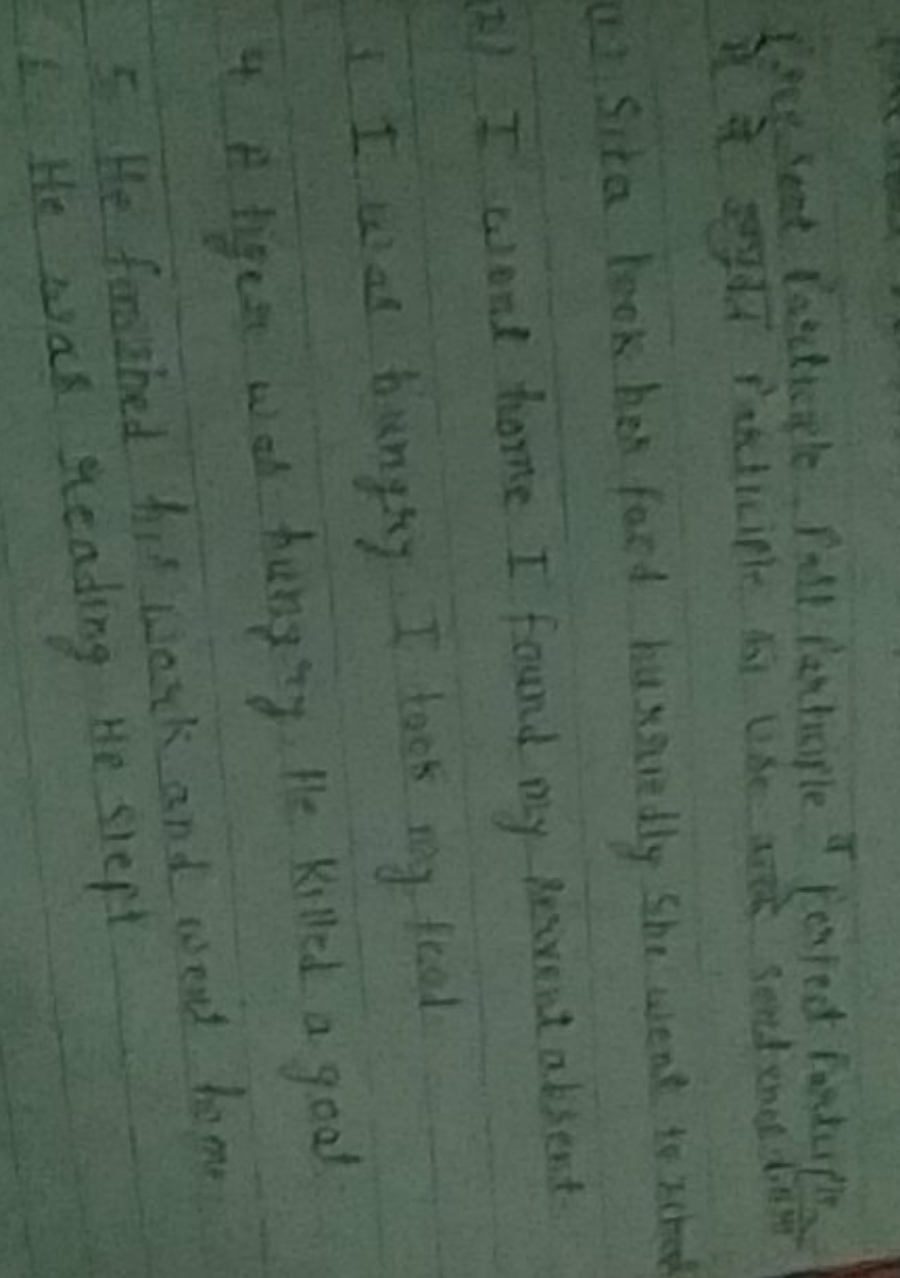 Present Participle Past Participle Perfect Participle
में से Participle का Use
(1) Sita took her food hurriedly She went to school
(2) I went home I found my servent absent
I was hungry. I took my food
4 A tiger was hungry. He killed a goat
5 He finished his work and went home
He was reading He slept